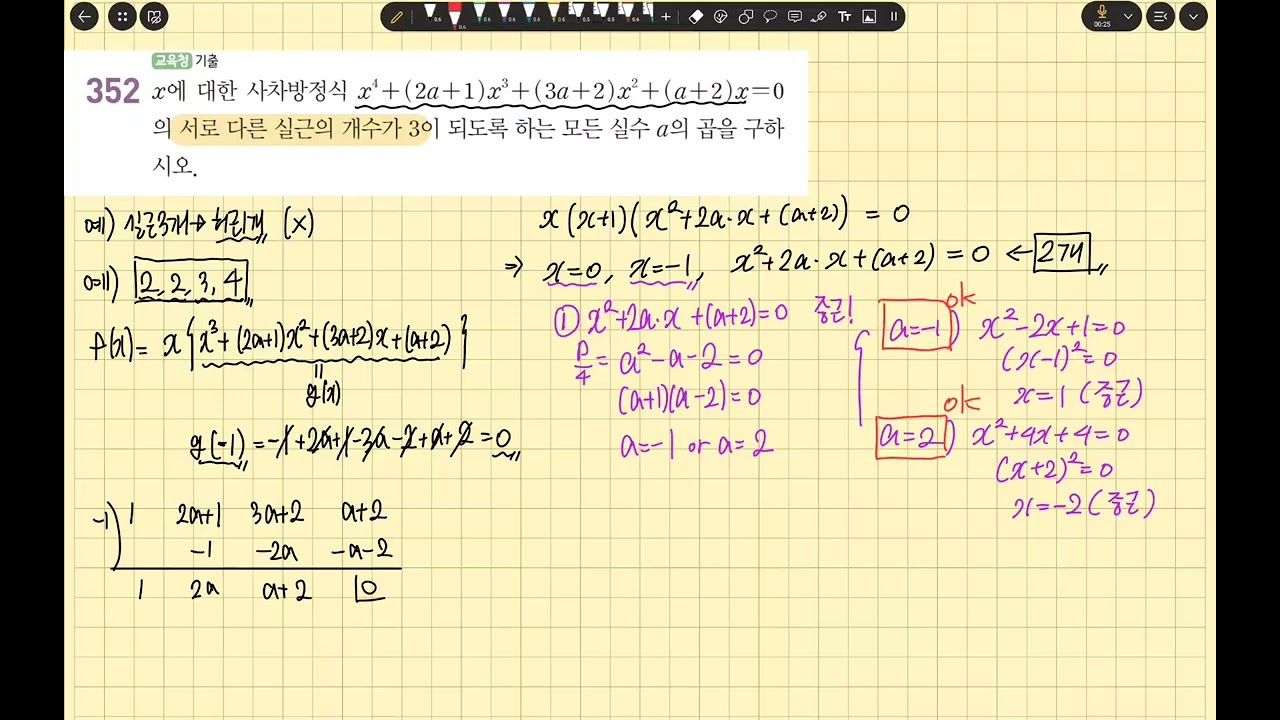 00:25
교육청 기출
352 x에 대한 사차방정식 x⁴+(2a+1)x³+(3a+2)x²+(a+2)x=0
의 서로 다른 실근의 개수가 3이 되도록 하는 모든 실수 a의 곱을 구하
시오.
예) 실근3개→허근1개 (x)
예ii) 2, 2, 3, 4
P(x) = x{x³+(2a+1)x²+(3a+2)x+(a+2)}
g(x)
g(-1) = -1+2a+1-3a-2+a+2 = 0
-1) 1 2a+1 3a+2 a+2
-1 -2a -a-2
1 2a a+2 0
x(x+1)(x²+2a·x+(a+2)) = 0
⇒ x=0, x=-1, x²+2a·x+(a+2) = 0 ← 2개
① x²+2a·x+(a+2)=0 중근!
D/4 = a²-a-2=0
(a+1)(a-2)=0
a=-1 or a=2
a=-1) ok x²-2x+1=0
(x-1)²=0
x=1 (중근)
a=2) ok x²+4x+4=0
(x+2)²=0
x=-2 (중근)